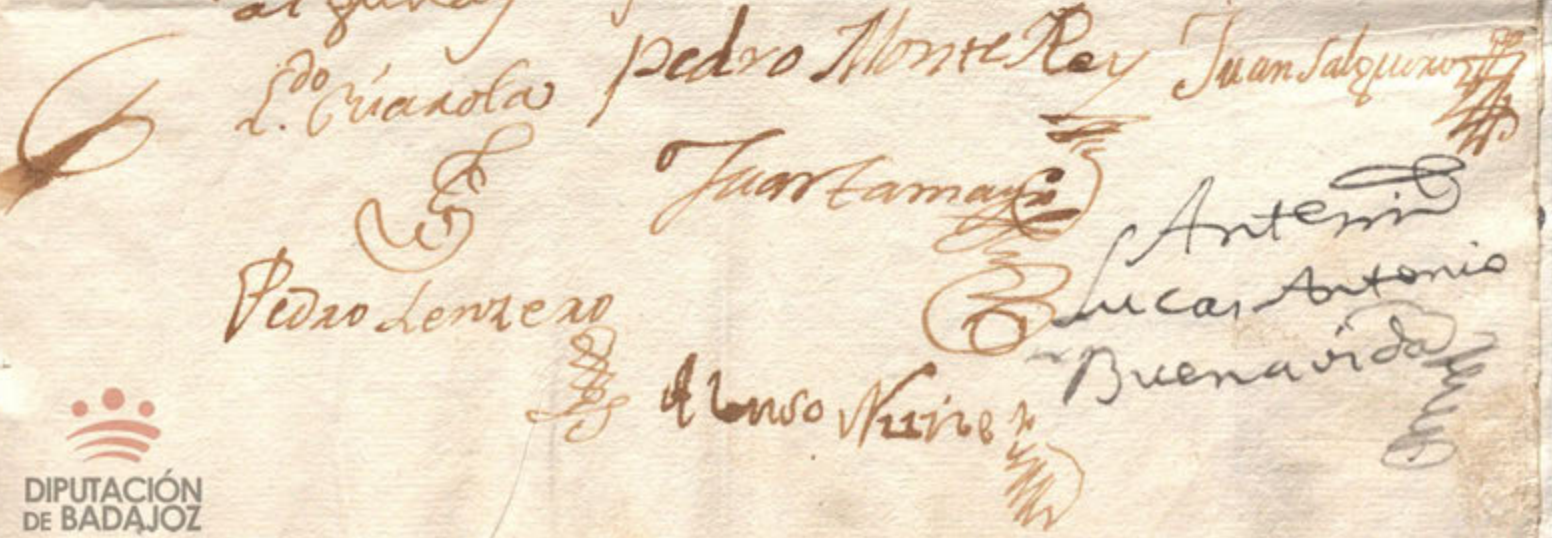 algunas
L.do Pedro Monte Rey Juan Salguero
Juan tamayo
Antemi
Pedro Lenzero
Lucas Antonio
Buenavida
Alonso Nuñez
DIPUTACIÓN
DE BADAJOZ